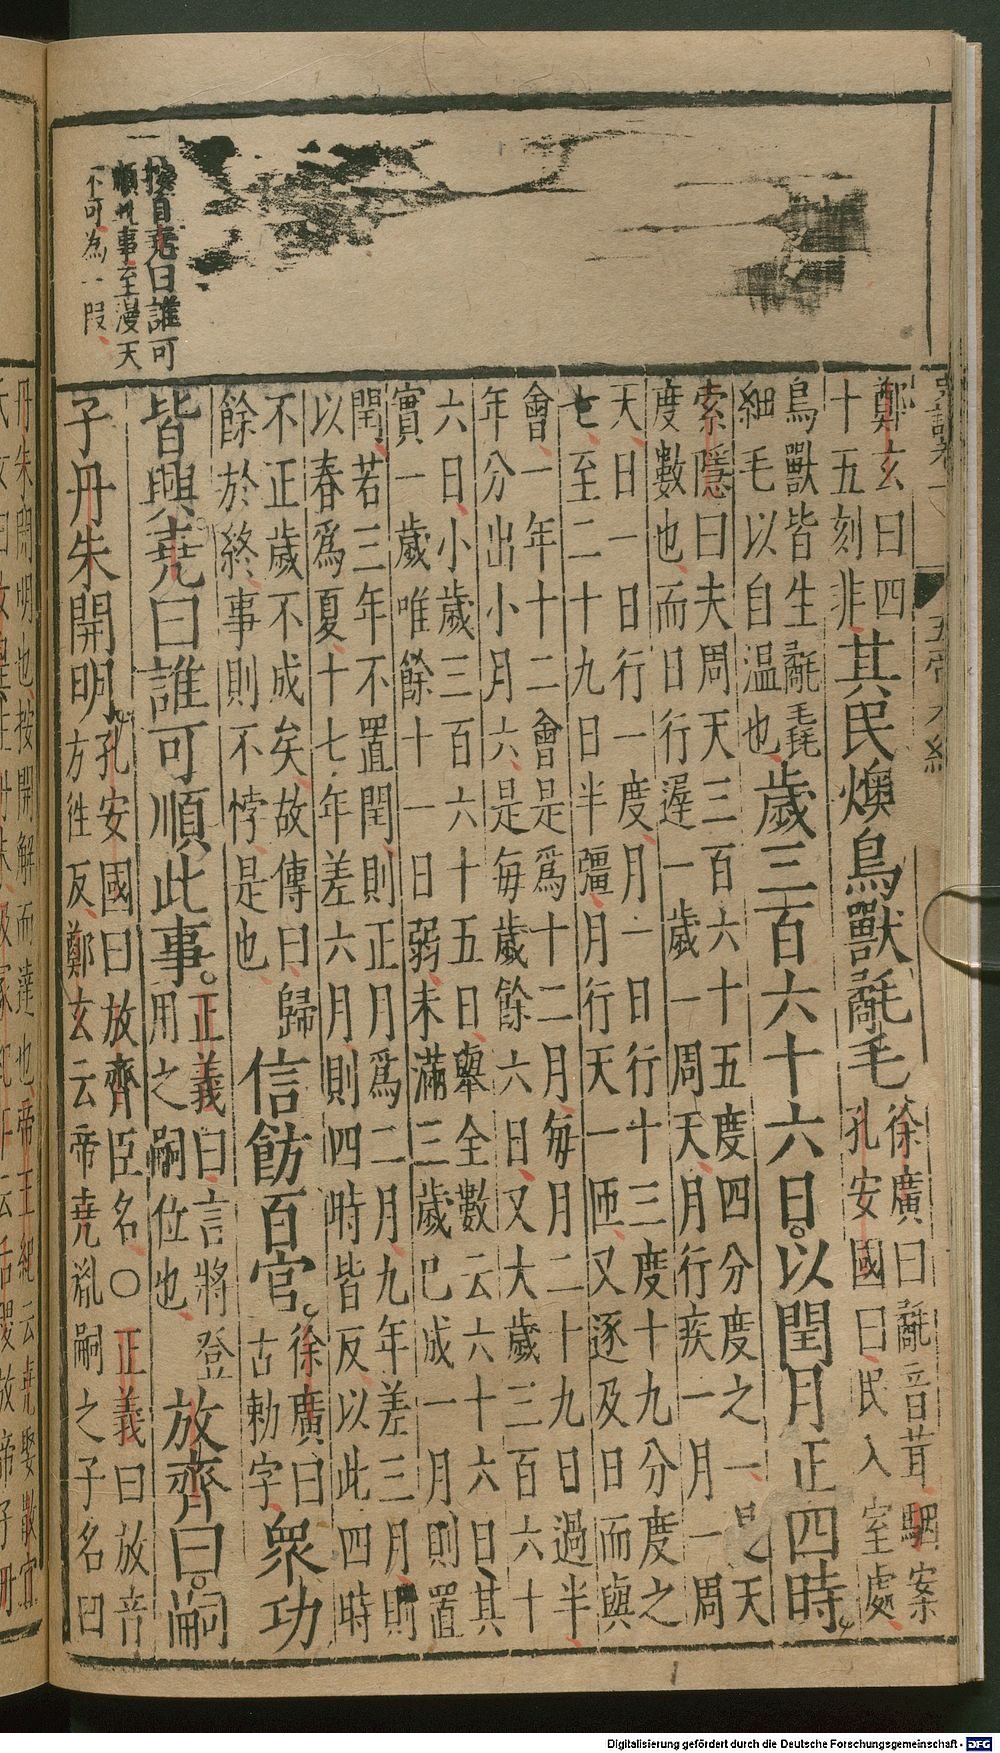 史記卷一 五帝本紀
鄭玄曰四
十五刻非
其民燠鳥獸氄毛
徐廣曰氄音茸駰案
孔安國曰民入室處
鳥獸皆生氄毳
細毛以自温也
歲三百六十六日以閏月正四時
索隱曰夫周天三百六十五度四分度之一是天
度數也而日行遲一歲一周天月行疾一月一周
天日一日行一度月一日行十三度十九分度之
七至二十九日半彊月行天一匝又逐及日而與
會一年十二會是爲十二月每月二十九日過半
年分出小月六是每歲餘六日又大歲三百六十
六日小歲三百六十五日舉全數云六十六日其
實一歲唯餘十一日弱未滿三歲巳成一月則置
閏若三年不置閏則正月爲二月九年差三月則
以春爲夏十七年差六月則四時皆反以此四時
不正歲不成矣故傳曰歸
餘於終事則不悖是也
信飭百官
徐廣曰
古勅字
衆功
皆興堯曰誰可順此事
正義曰言將登
用之嗣位也
放齊曰嗣
子丹朱開明
孔安國曰放齊臣名〇正義曰放音
方徃反鄭玄云帝堯胤嗣之子名曰
一按自堯曰誰可
順此事至漫天
不可為一段
丹朱開明也按開解而達也帝王紀云堯娶散宜
Digitalisierung gefördert durch die Deutsche Forschungsgemeinschaft - DFG